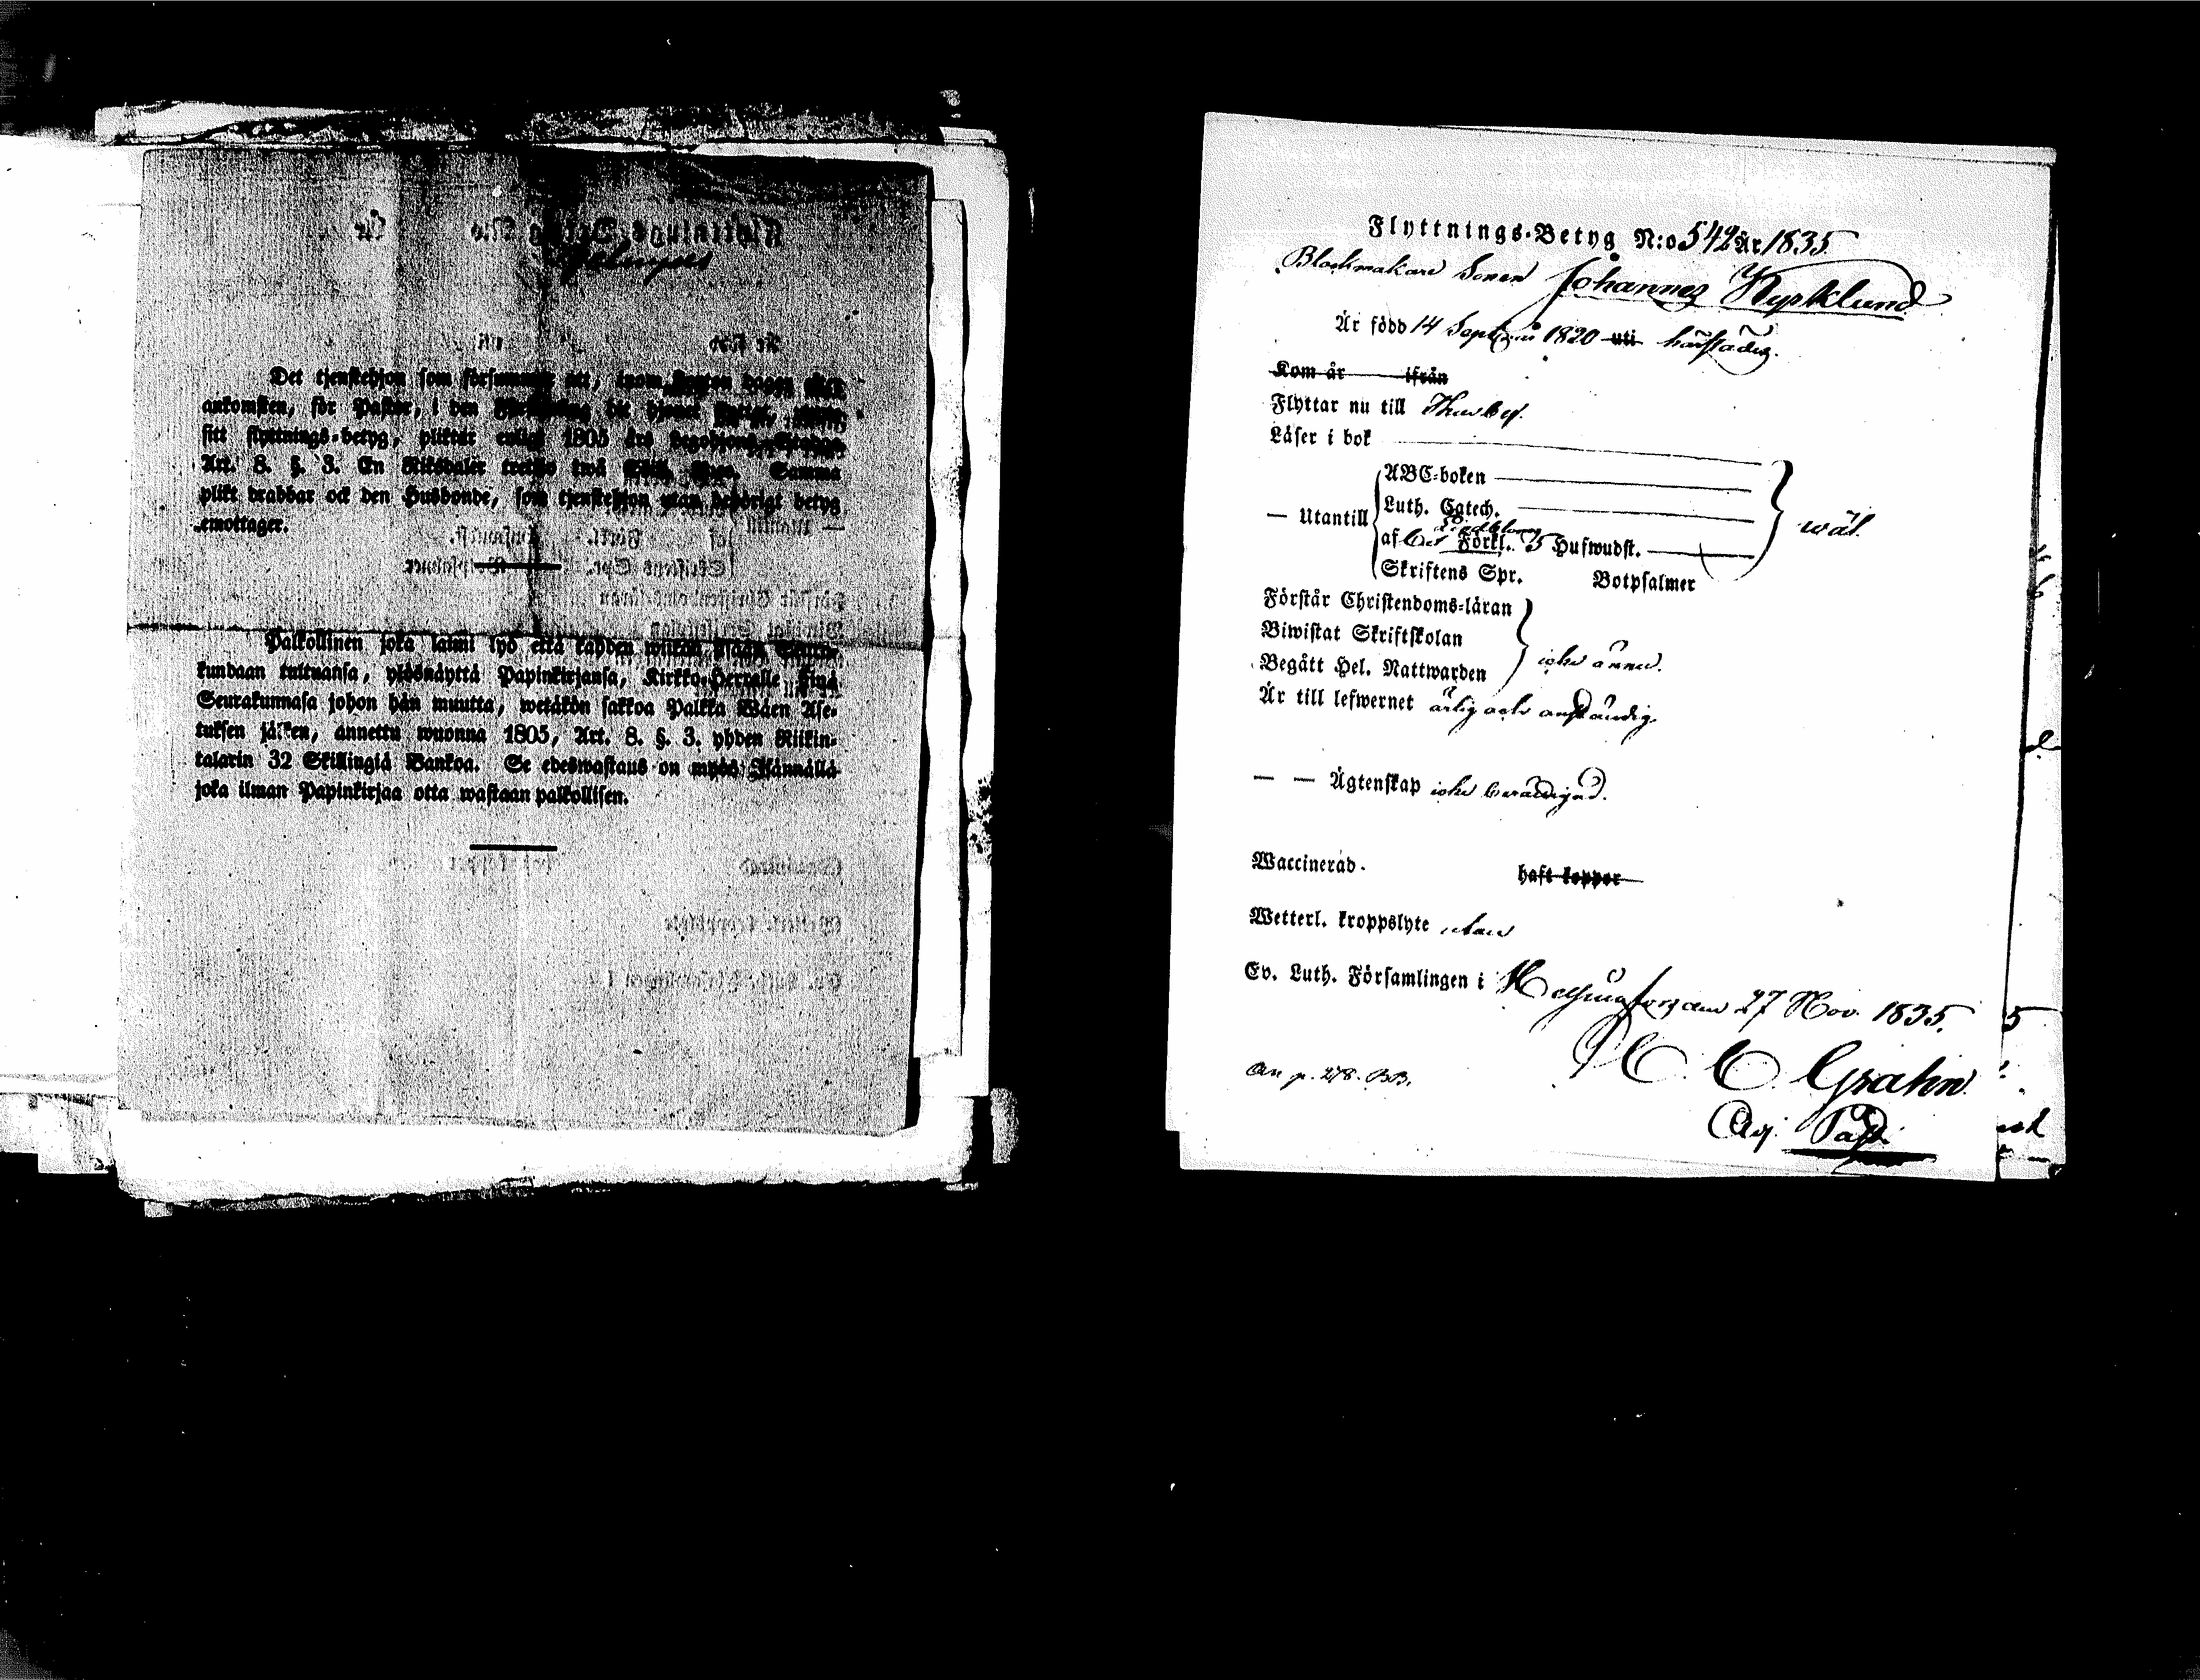 Det tjenstehjon som försummar att, inom fjorton dagar efter
ankomsten, för Pastor, i den
sitt flyttnings-betyg, pliktar enligt 1805 års
Art. 8. §. 3. En Riksdaler trettio twå Samma
plikt drabbar ock den Husbonde, som tjenstehjon utan behörigt betyg
emottager.
Palkollinen joka laimi lyö että kahden wiikon sisään
kundaan tultuansa, ylösnäyttä Papinkirjansa, Kirkko-Herralle siinä
Seurakunnasa johon hän muutta, wetäkön sakkoa Palkka Wäen Ase-
tuksen jälken, annettu wuonna 1805, Art. 8. §. 3. yhden Riikin-
talarin 32 Skillingiä Bankoa. Se edeswastaus on myös Isännällä
joka ilman Papinkirjaa otta wastaan palkollisen.
Flyttnings-Betyg N:o 542 År 1835
Blockmakare Sonen Johannes Kyrklund
Är född 14 September 1820 uti härstädes.
Kom år ifrån
Flyttar nu till Thusby.
Läser i bok
ABC-boken
Luth. Catech.
— Utantill wäl
Swedbloms
af Förkl. 5 Hufwudst.
Skriftens Spr. Botpsalmer
Förstår Christendoms-läran
Biwistat Skriftskolan
icke ännu.
Begått Hel. Nattwarden
Är till lefwernet ärlig och anständig
— — Ägtenskap icke berättigad.
Waccinerad. haft koppor
Wetterl. kroppslyte utan
Ev. Luth. Församlingen i Helsingfors den 27 Nov. 1835.
C. Grahn
An p. 278. BB.
Adj. Past.